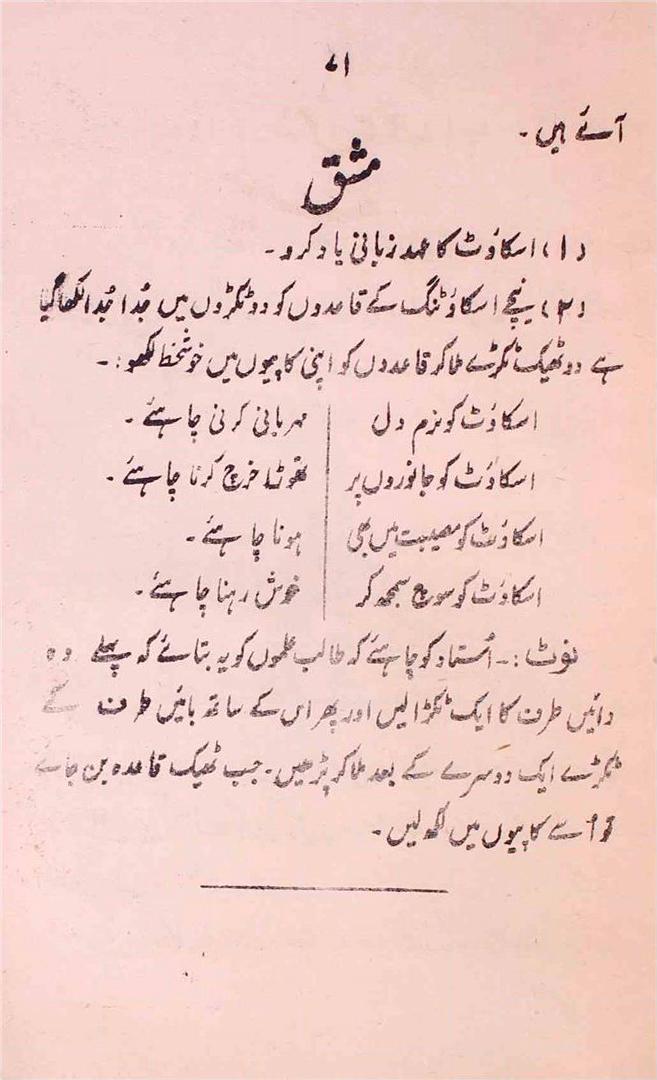 ۷۱
آتے ہیں ۔
مشق
(۱) اسکاؤٹ کا عہد زبانی یاد کرو ۔
(۲) نیچے اسکاؤٹنگ کے قاعدوں کو دو ٹکڑوں میں جُدا جُدا لکھا گیا
ہے دو ٹھیک ٹکڑے ملا کر قاعدوں کو اپنی کاپیوں میں خوشخط لکھو :۔
اسکاؤٹ کو نرم دل | مہربانی کرنی چاہئے ۔
اسکاؤٹ کو جانوروں پر | تھوڑا خرچ کرنا چاہئے ۔
اسکاؤٹ کو مصیبت میں بھی | ہونا چاہئے ۔
اسکاؤٹ کو سوچ سمجھ کر | خوش رہنا چاہئے ۔
نوٹ :۔ اُستاد کو چاہئے کہ طالب علموں کو یہ بتائے کہ پہلے وہ
دائیں طرف کا ایک ٹکڑا لیں اور پھر اس کے ساتھ بائیں طرف کے
ٹکڑے ایک دوسرے کے بعد ملا کر پڑھیں ۔ جب ٹھیک قاعدہ بن جائے
تو اسے کاپیوں میں لکھ لیں ۔